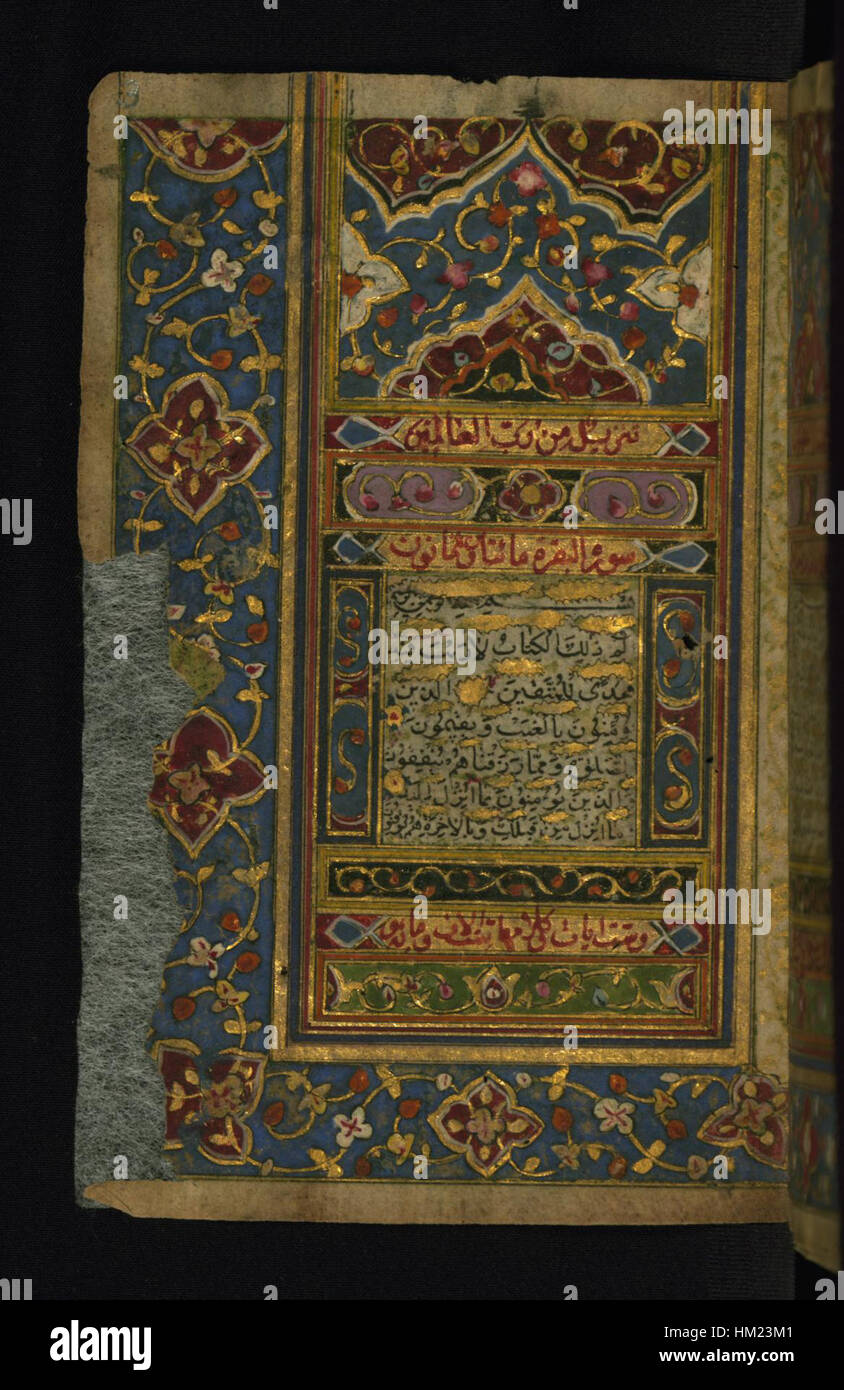 تنزيل من رب العالمين
سورة البقرة مائتان و ثمانون
ذلك الكتاب لا ريب
هدى للمتقين الذين
يؤمنون بالغيب و يقيمون
الصلوة و مما رزقناهم ينفقون
والذين يؤمنون بما انزل اليك
ما انزل من قبلك و بالاخرة هم
alamy
Image ID: HM23M1
www.alamy.com